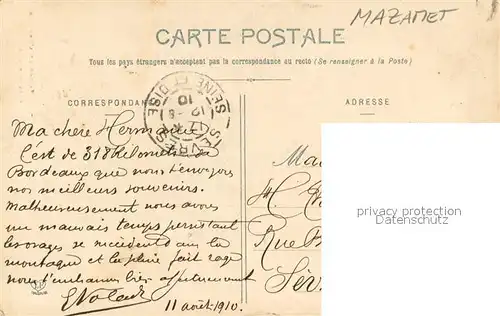 MAZAMET
CARTE POSTALE
Tous les pays étrangers n'acceptent pas la correspondance au recto (Se renseigner à la Poste)
CORRESPONDAN
ADRESSE
SEINE ET OISE
10
12 - 8
Ma chère Hermance
C'est de 318 Kilomètres de
Bordeaux que nous t'envoyons
nos meilleurs souvenirs.
Malheureusement nous avons
un mauvais temps persistant
les orages se succèdent dans la
montagne et la pluie fait rage
nous t'embrassons bien affectueusement
11 août 1910.
Ma
Rue
Sèv
privacy protection
Datenschutz